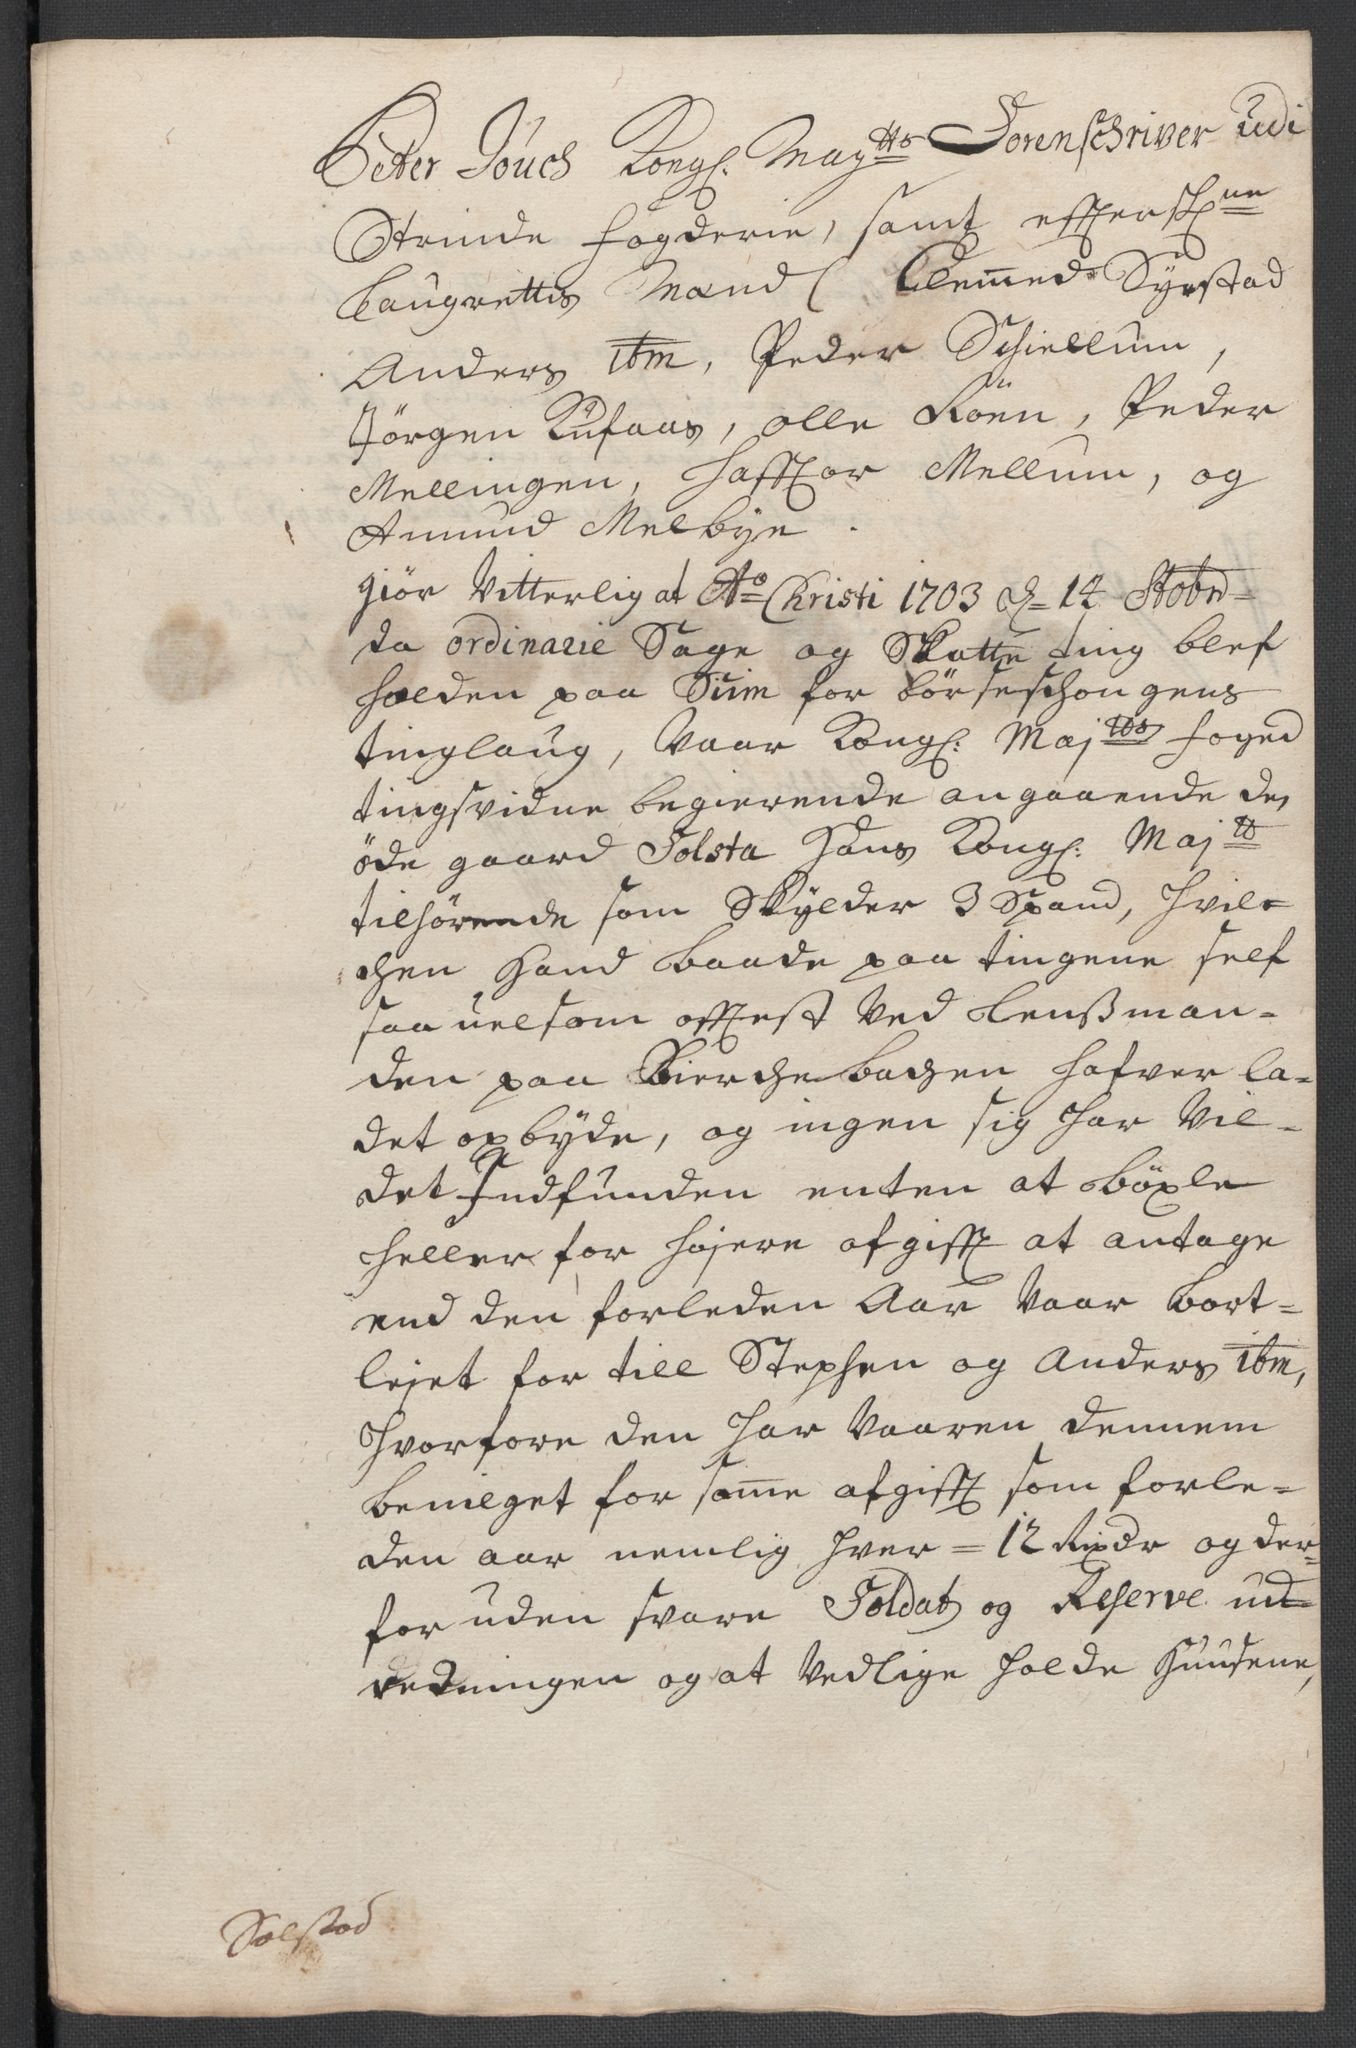 Peter Jouch Kongl. May:tts Sorenschriver udi
Strinde fogderie, samt effterschr:ne
Laugrettis Mænd (Clemmed Syrstad
Anders ibm, Peder Schiellum,
Jörgen Kufaas, olle Röen, Peder
Mellingen, Hafftor Mellum, og
Amund Melbye.
giör Vitterlig at Ao Christi 1703 d. 14 Octobr
da ordinarie Sage og Skatte ting blef
holden paa Suim for börseschongens
tinglaug, Vaar Kongl: Maj:tts foged
tingsvidne begierende angaaende den
öde gaard Solsta Hans Kongl: Maj:tt
tilhörende som Skylder 3 Spand, hvil-
chen Hand baade paa tingene self
saauelsom offtest Ved Lenßman-
den paa Kierchebachen hafver la-
det opbyde, og ingen sig har Vil-
det Indfunden enten at böxle
heller for højere afgifft at antage
end den forleden Aar Vaar bort-
lejet for till Stephen og Anders ibm,
Hvorfore den har Vaaren dennem
bevilget for samme afgifft som forle-
den aar nemlig hver = 12 Rixdr og der-
foruden svare Soldat og Reserve ud-
redningen og at Vedlige holde Huusene,
Solstad